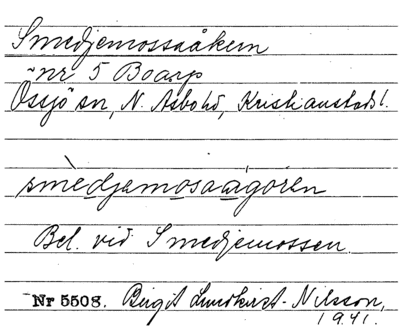 Smedjemossaåkern
nr 5 Boarp
Össjö sn, N. Åsbo hd, Kristianstads l.
smèdjamosaagóren
Bel. vid Smedjemossen.
Nr 5508. Birgit Lundkvist-Nilsson,
1941.